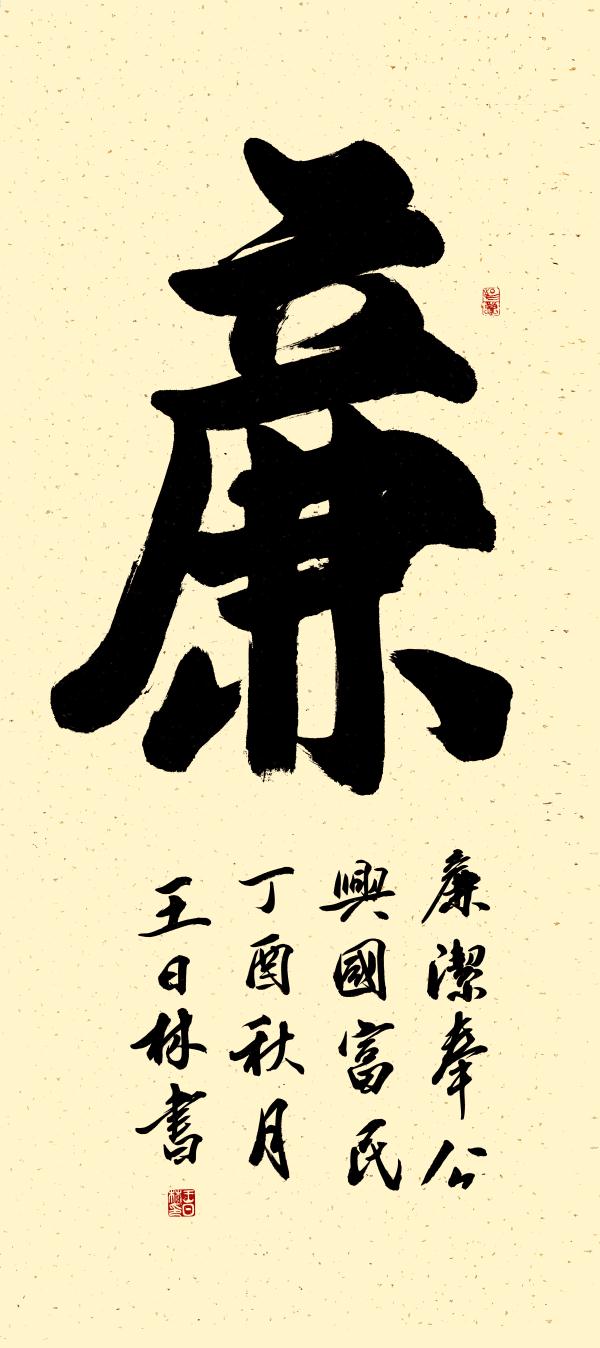 廉
廉潔奉公
興國富民
丁酉秋月
王日林書